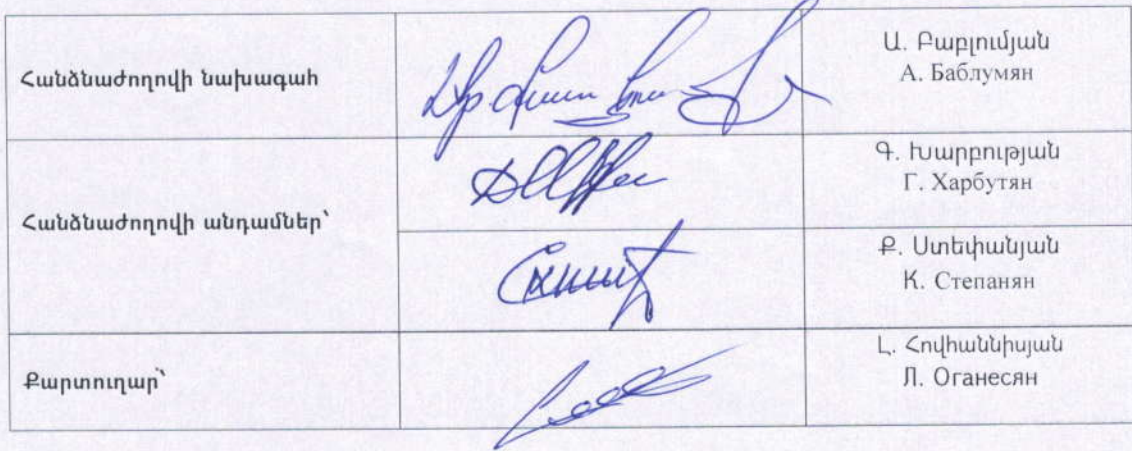 Հանձնաժողովի նախագահ
Ա. Բաբլումյան
А. Баблумян
Հանձնաժողովի անդամներ՝
Գ. Խարբության
Г. Харбутян
Ք. Ստեփանյան
К. Степанян
Քարտուղար՝
Լ. Հովհաննիսյան
Л. Оганесян